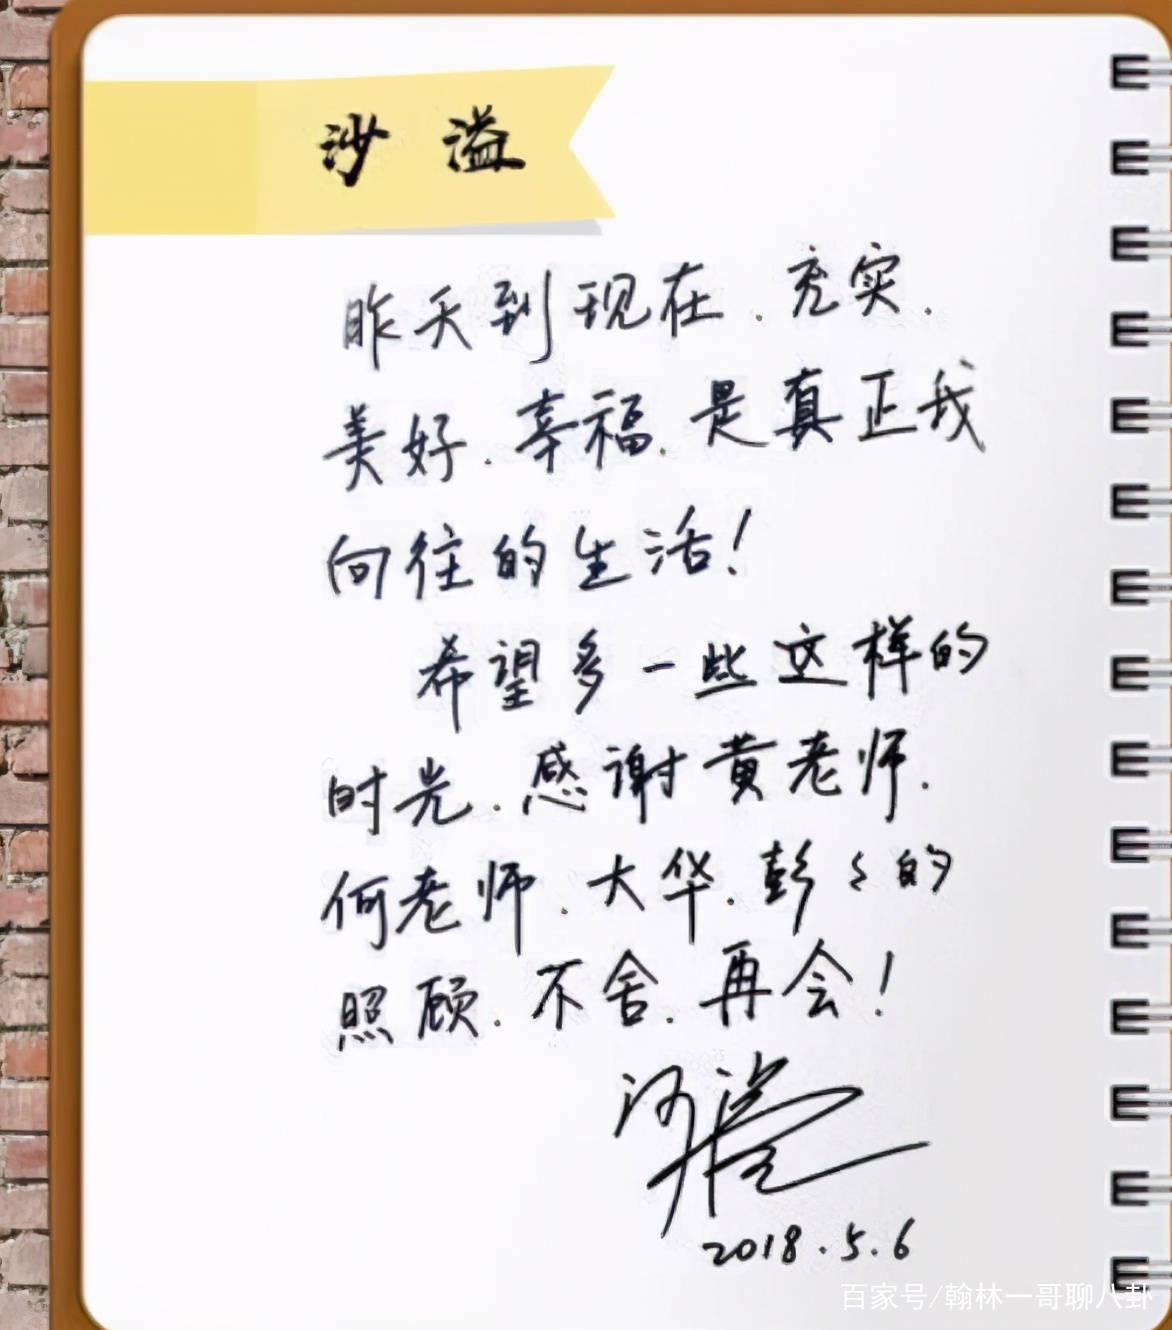 沙 溢
昨天到现在.充实.
美好.幸福.是真正我
向往的生活!
希望多一些这样的
时光.感谢黄老师.
何老师.大华.彭彡的
照顾.不舍.再会!
沙溢
2018.5.6
百家号/翰林一哥聊八卦